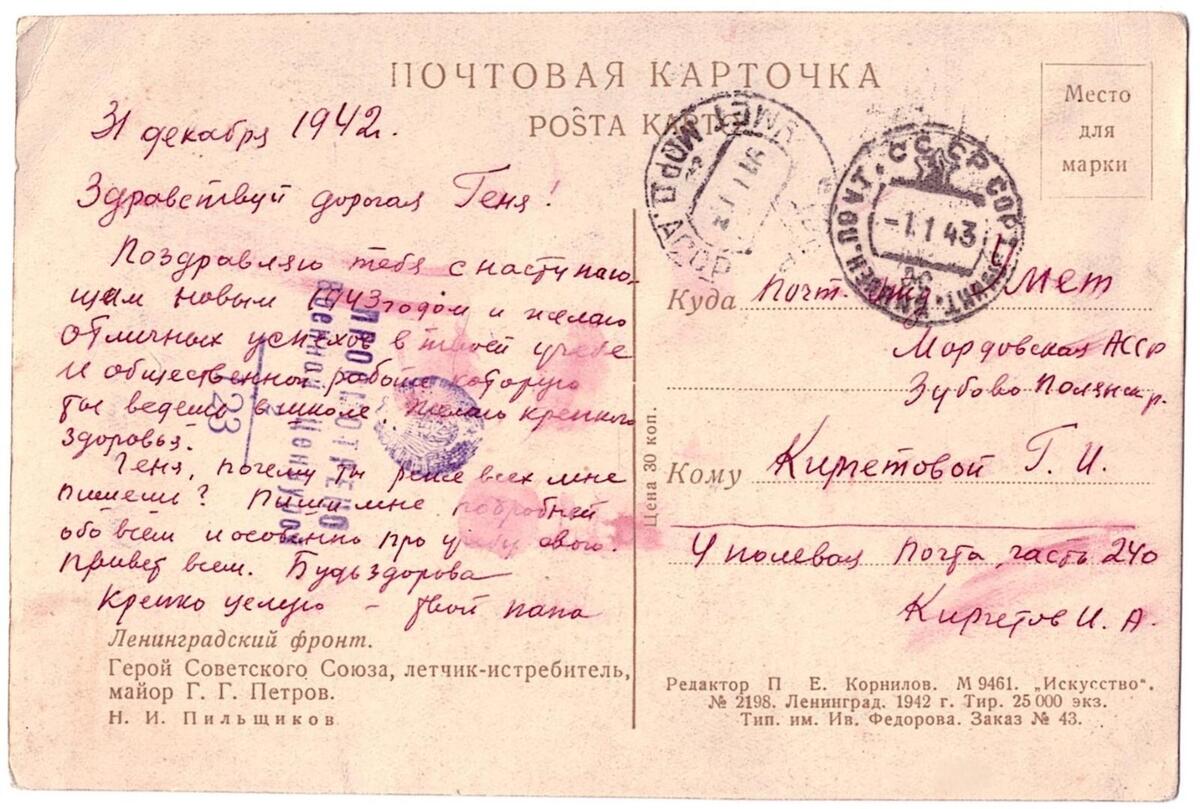 ПОЧТОВАЯ КАРТОЧКА
POŜTA KARTO
Место
для
марки
31 декабря 1942г.
Здравствуй дорогая Геня!
Поздравляю тебя с наступаю-
щим новым 1943 годом и желаю
отличных успехов в твоей учебе
и общественной работе которую
ты ведешь в школе. Желаю крепкого
здоровья.
Геня, почему ты реже всех мне
пишешь? Пиши мне подробней
обо всем и особенно про учебу свою.
Привет всем. Будь здорова
Крепко целую – твой папа
Ленинградский фронт.
Герой Советского Союза, летчик-истребитель,
майор Г. Г. Петров.
Н. И. Пильщиков
ПРОСМОТРЕНО
Военной Цензурой
23
УМЕТ МОРД. АССР
СССР
-1.1 43
Цена 30 коп.
Куда Почт. Умет
Мордовская АССР
Зубово Полянск р.
Кому Г. И.
Ч полевая почта, часть 240
И. А.
Редактор П. Е. Корнилов. М 9461. „Искусство".
№ 2198. Ленинград. 1942 г. Тир. 25 000 экз.
Тип. им. Ив. Федорова. Заказ № 43.